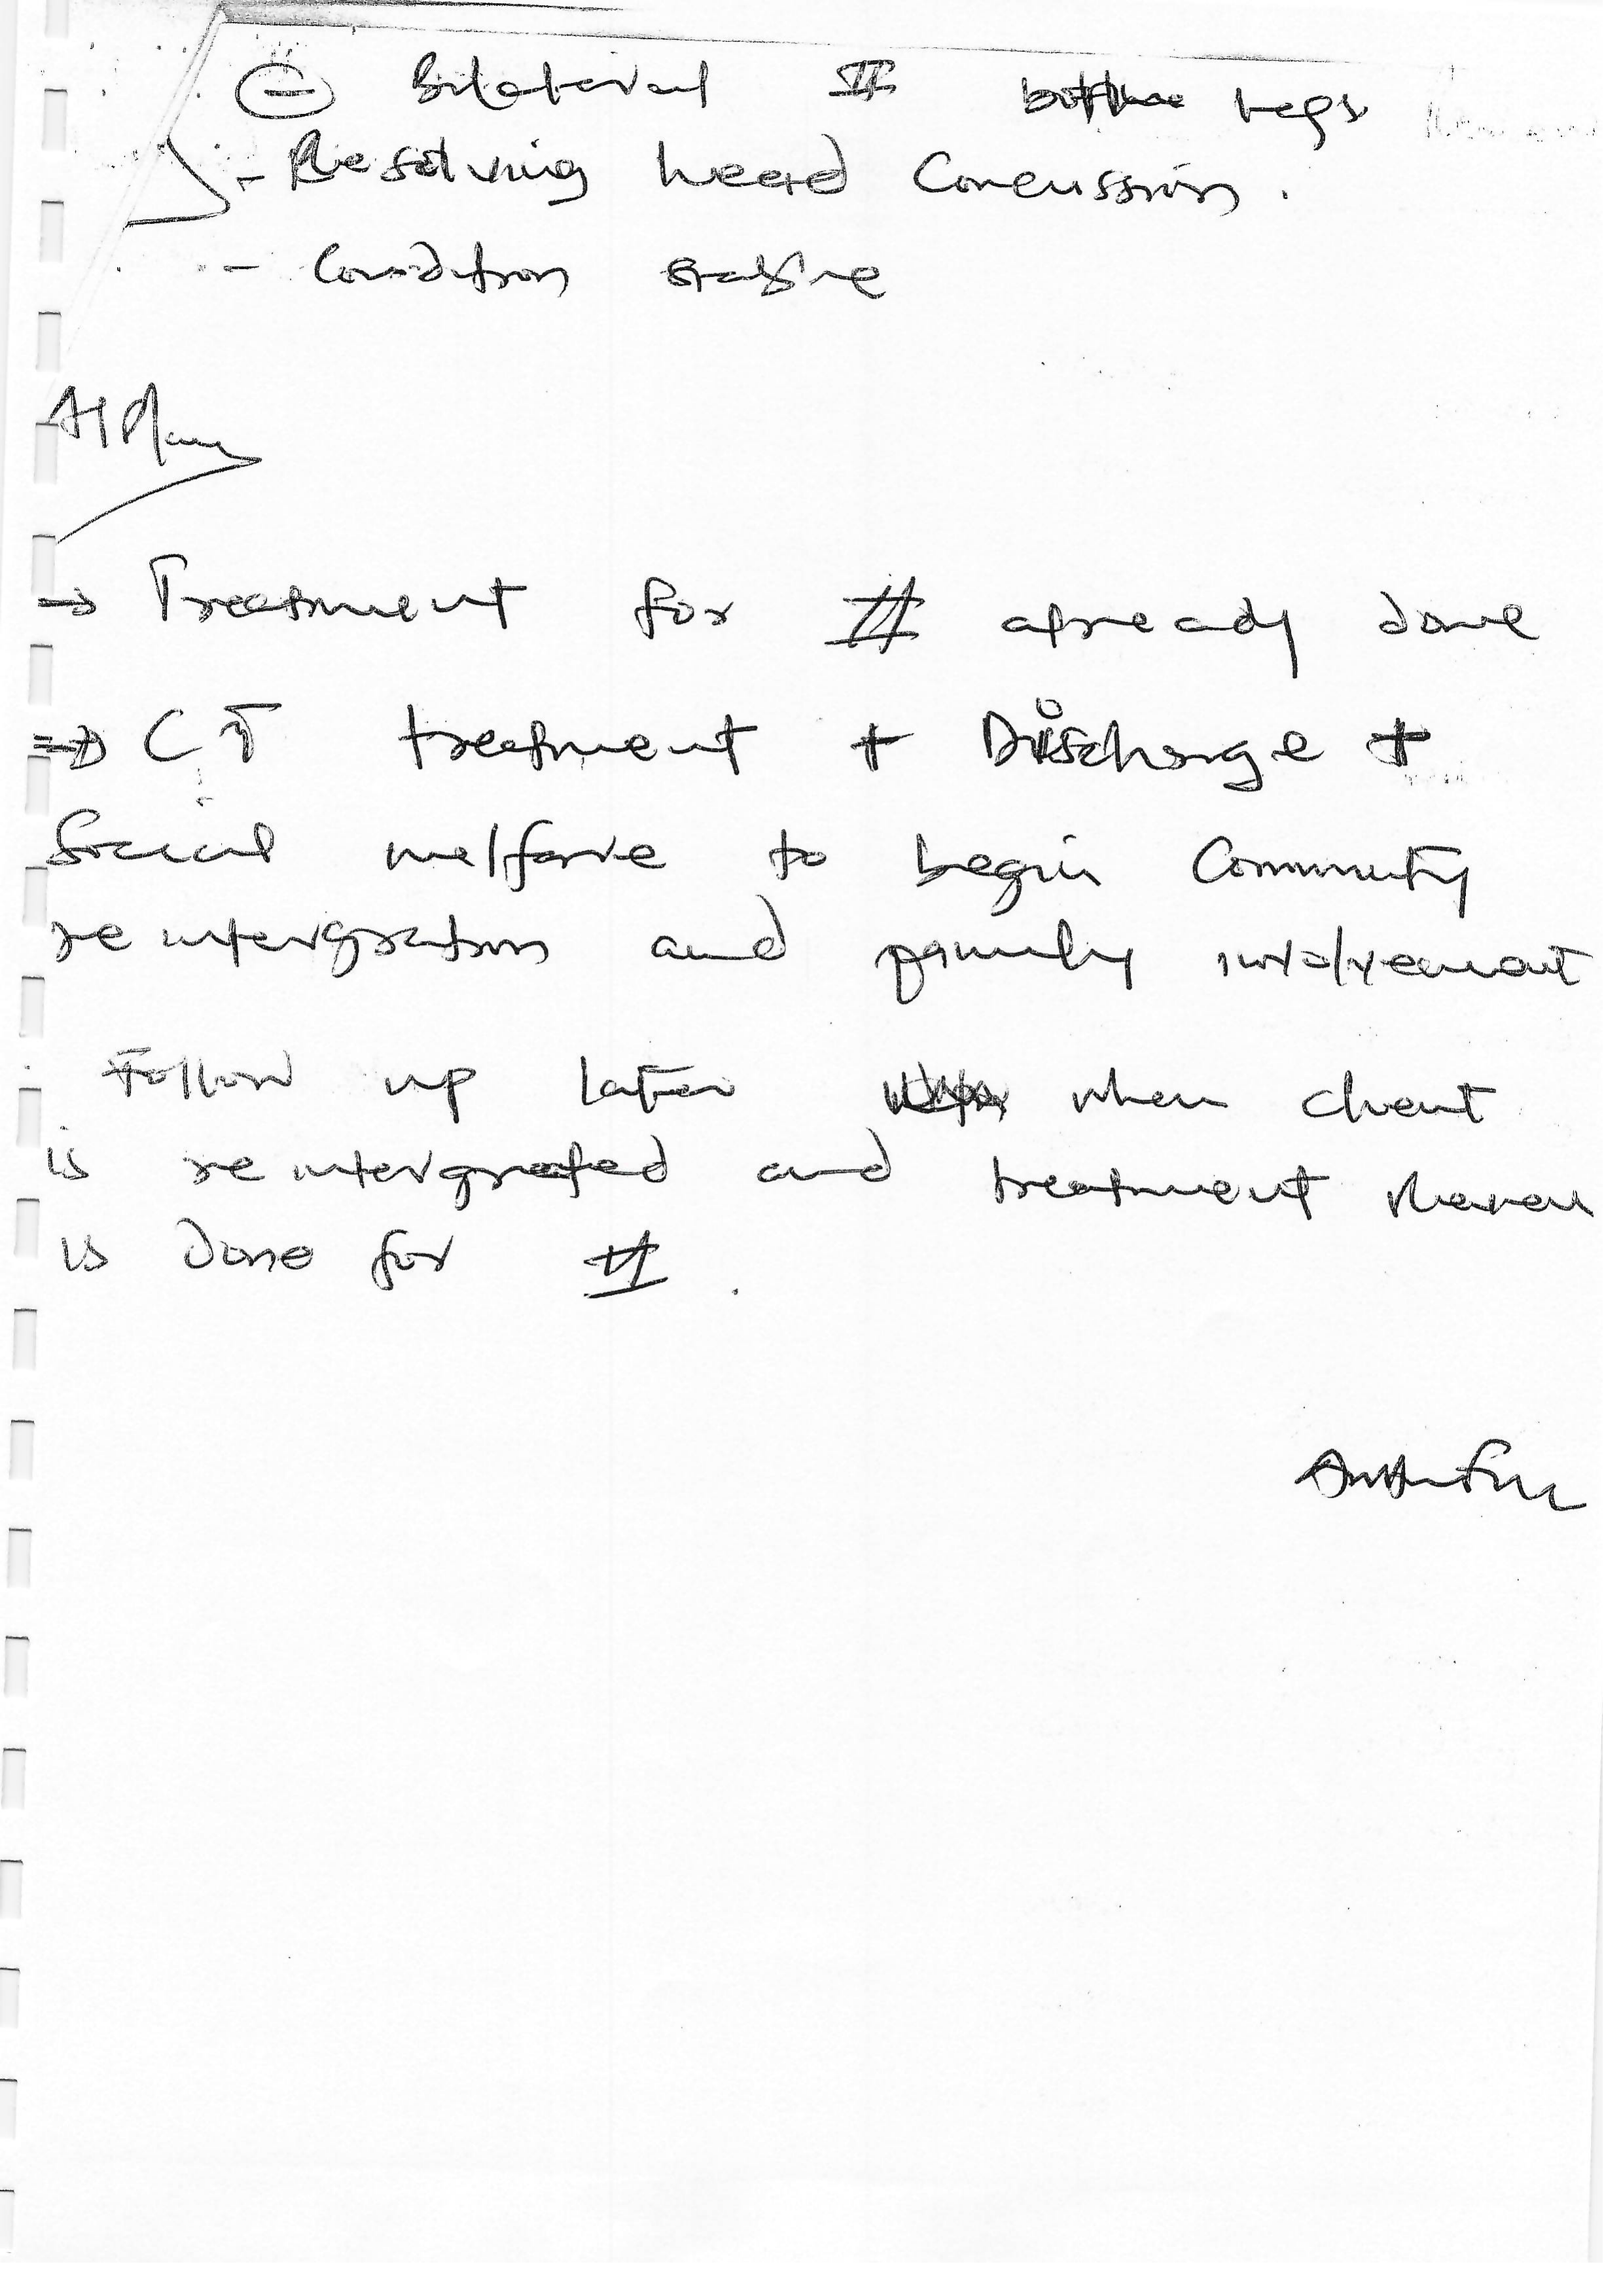 - Bilateral # legs
- Resolving head Concussion.
- Condition stable
A/Plan
→ Treatment for # already done
⇒ CT treatment + Discharge +
Social welfare to begin Community
reintergration and family involvement
Follow up later when client
is reintergrated and treatment
is done for #.